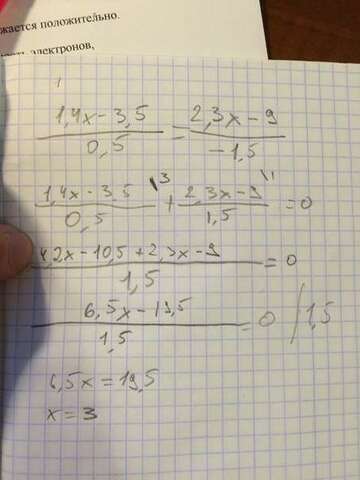 жается положительно.
электронов,
1
(1,4x - 3,5)/0,5 = (2,3x - 9)/-1,5
(1,4x - 3,5)/0,5 \3 + (2,3x - 9)/1,5 \1 = 0
(4,2x - 10,5 + 2,3x - 9)/1,5 = 0
(6,5x - 19,5)/1,5 = 0 / 1,5
6,5x = 19,5
x = 3